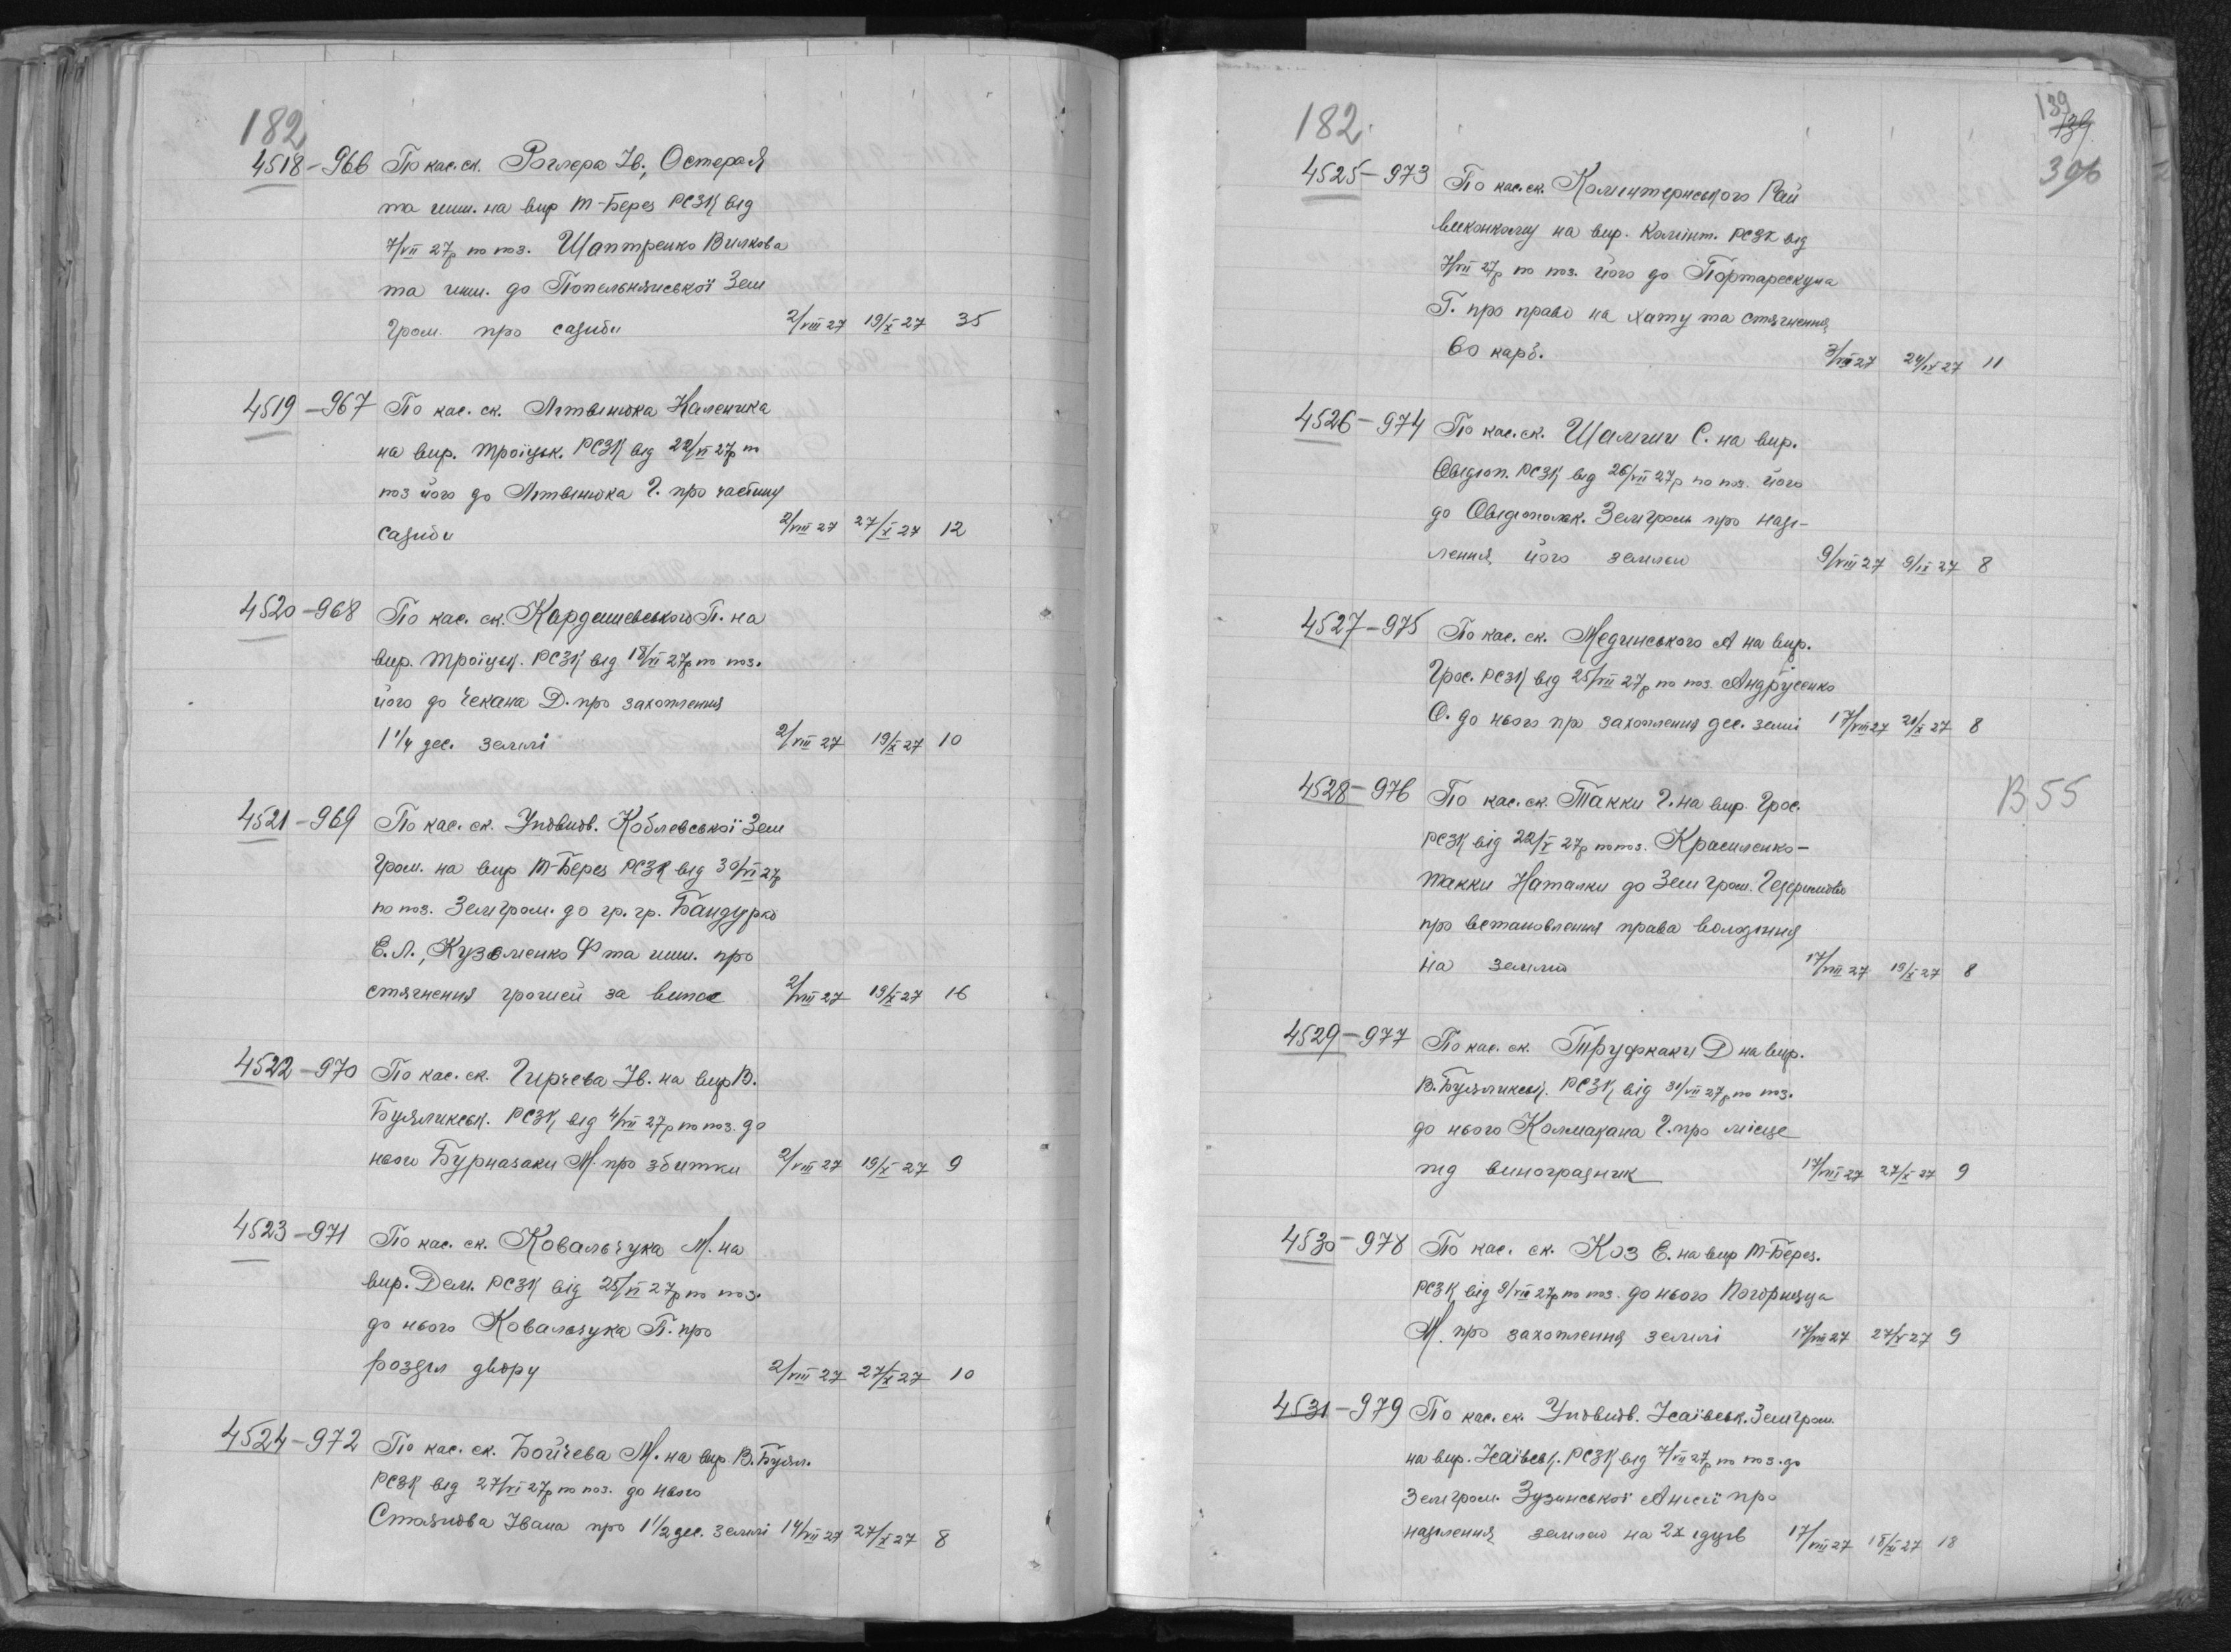 182
4518-966 По кас. ск. Роглера Ів., Остерая
та инш. на вир М-Берез РСЗК від
7/VII 27р по поз. Шаптренко Вилкова
та инш. до Попельнянської Зем
Гром. про садиби 2/VIII 27 19/X 27 35
4519-967 По кас. ск. Литвинюка Каленика
на вир. Троїцьк. РСЗК від 22/VI 27р по
поз його до Литвинюка Г. про частину
садиби 2/VIII 27 27/X 27 12
4520-968 По кас. ск. Кардашевського П. на
вир. Троїцьк. РСЗК від 18/VI 27р по поз.
його до Чекана Д. про захоплення
1 1/4 дес. землі 2/VIII 27 19/X 27 10
4521-969 По кас. ск. Уповнов. Коблевської Зем
Гром. на вир М-Берез РСЗК від 30/VI 27р
по поз. Земгром. до гр. гр. Бандурко
Е. Л., Кузьменко Ф та инш. про
стягнення грошей за випас 2/VIII 27 19/X 27 16
4522-970 По кас. ск. Гирчева Ів. на вир В.
Буяликськ. РСЗК від 4/VII 27р по поз. до
нього Бурназаки М. про збитки 2/VIII 27 19/X 27 9
4523-971 По кас. ск. Ковальчука М. на
вир. Дем. РСЗК від 25/VI 27р по поз.
до нього Ковальчука П. про
розділ двору 2/VIII 27 27/X 27 10
4524-972 По кас. ск. Бойчева М. на вир В. Буял.
РСЗК від 27/VI 27р по поз. до нього
Стоянова Івана про 1 1/2 дес. землі 14/VII 27 27/X 27 8
182
139
139
306
4525-973 По кас. ск. Комінтернського Рай
виконкому на вир. Комінт. РСЗК від
7/VII 27р по поз. його до Портарескула
Г. про право на хату та стягнення
60 карб. 3/VIII 27 24/IX 27 11
4526-974 По кас. ск. Шамгин С. на вир.
Овідіоп. РСЗК від 26/VII 27р по поз. його
до Овідіопольк. Земгром про наді-
лення його землею 9/VIII 27 9/IX 27 8
4527-975 По кас. ск. Мединського А на вир.
Грос. РСЗК від 25/VII 27р по поз. Андрусенко
О. до нього про захоплення дес. землі 17/VIII 27 20/X 27 8
4528-976 По кас. ск. Такки Г. на вир. Грос.
РСЗК від 22/V 27р по поз. Красиленко-
Такки Наталки до Зем Гром.
про встановлення права володіння
на землю 17/VIII 27 19/X 27 8
В 55
4529-977 По кас. ск. Труфкаки Д на вир.
В. Буяликськ. РСЗК від 31/VII 27р по поз.
до нього Колмакана Г. про місце
під виноградник 17/VIII 27 27/X 27 9
4530-978 По кас. ск. Коз Е. на вир М-Берез.
РСЗК від 9/VII 27р по поз. до нього Погорильця
М. про захоплення землі 17/VIII 27 27/X 27 9
4531-979 По кас. ск. Уповнов. Ісаївськ. Земгром.
на вир. Ісаївськ. РСЗК від 7/VII 27р по поз. до
Земгром. Зузанської Анни про
наділення землею на 2х їдців 17/VIII 27 18/XI 27 18